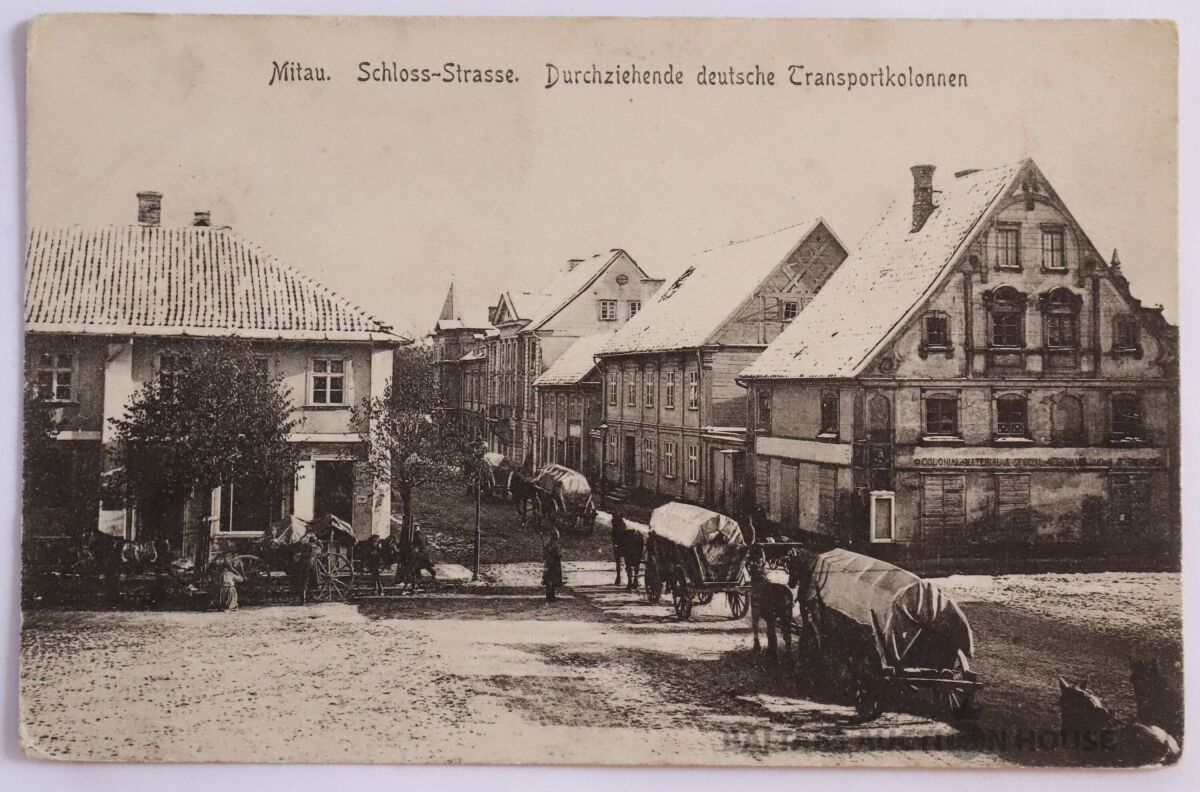 Mitau. Schloss-Strasse. Durchziehende deutsche Transportkolonnen
COLONIAL-MATERIAL
BALTARS AUCTION HOUSE